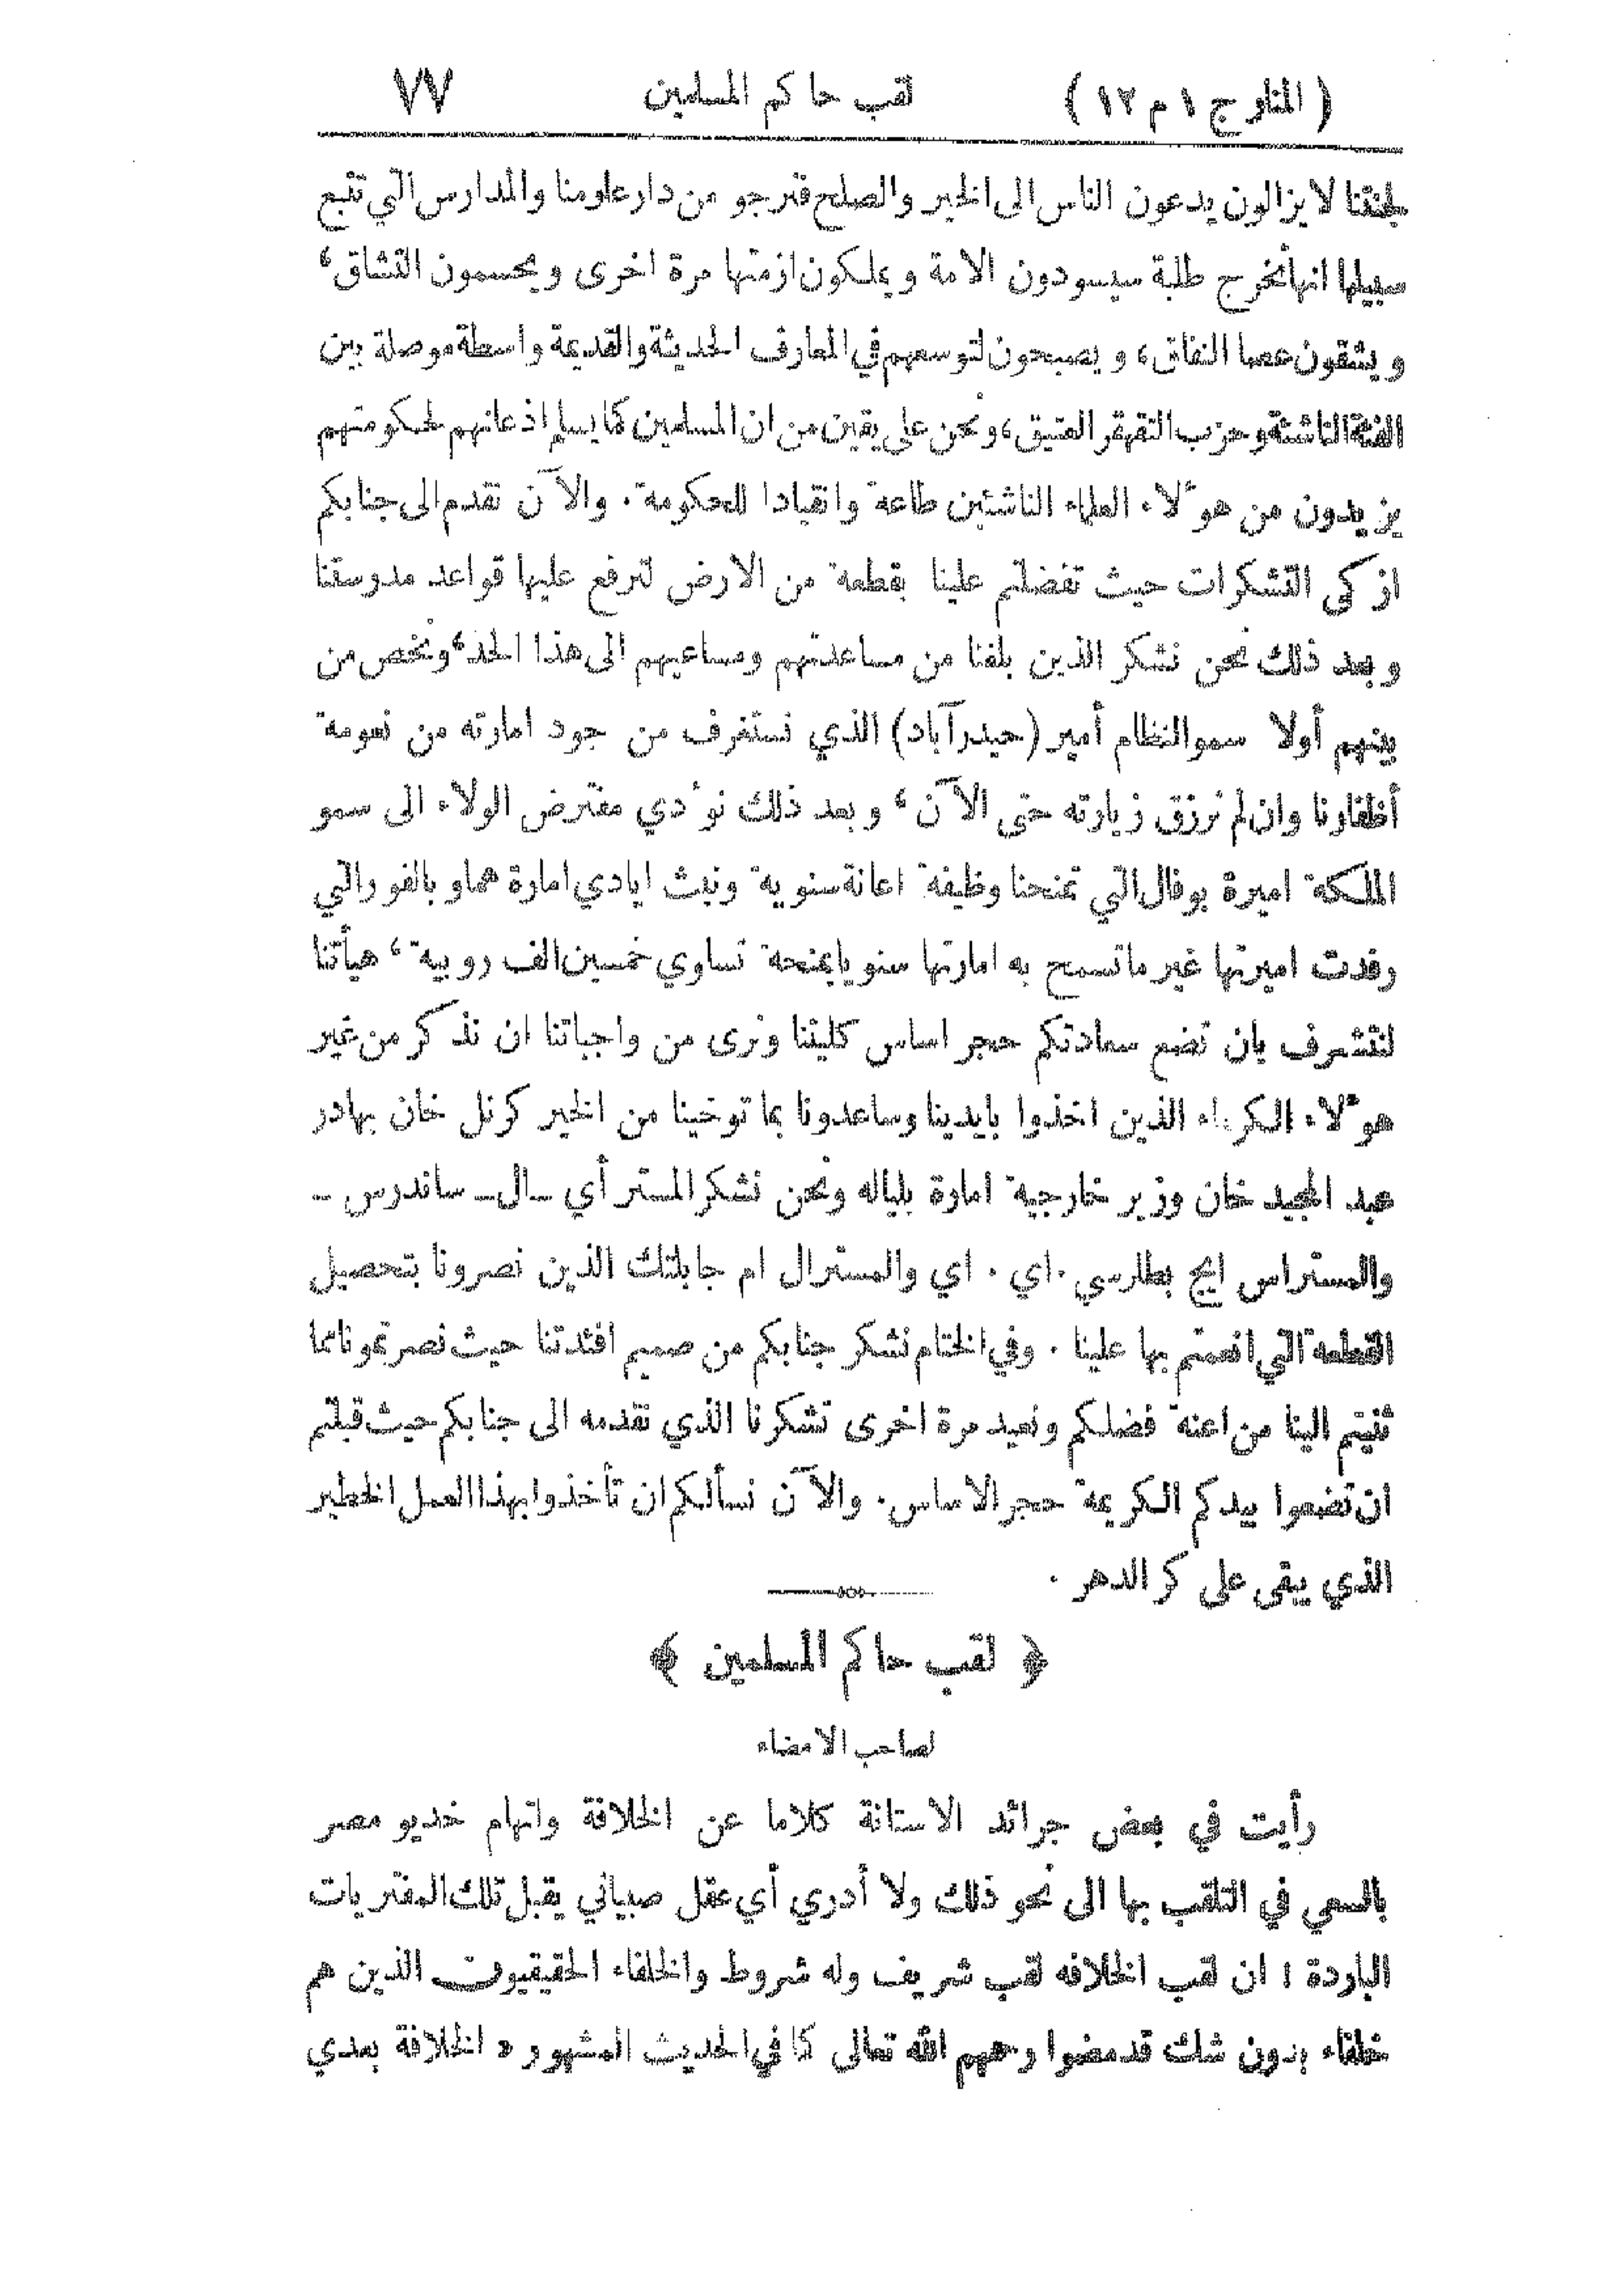 ( المنار ج ١ م ١٢ ) لقب حاكم المسلمين ٧٧
لجنتنا لا يزالون يدعون الناس الى الخير والصلح فنرجو من دار علومنا والمدارس التي تتبع
سبيلها انها تخرج طلبة سيسودون الامة ويملكون ازمتها مرة اخرى ويحسمون التشاق ،
ويشقون عصا النفاق ، ويصبحون لتوسعهم في المعارف الحديثة والقديمة واسطة موصلة بين
الفئة الناشئة وحزب التقهقر العتيق ، ونحن على يقين من ان المسلمين كما يسلم اذعانهم لحكومتهم
يزيدون من هؤلاء العلماء الناشئين طاعة وانقيادا للحكومة . والآن نقدم الى جنابكم
ازكى التشكرات حيث تفضلتم علينا بقطعة من الارض لترفع عليها قواعد مدرستنا
وبعد ذلك نحن نشكر الذين بلغنا من مساعدتهم ومساعيهم الى هذا الحد ، ونخص من
بينهم أولا سمو النظام أمير (حيدرآباد) الذي نستغرف من جود امارته من نعومة
أظفارنا وان لم نرزق زيارته حتى الآن ، وبعد ذلك نؤدي مفترض الولاء الى سمو
الملكة اميرة بوفال التي تمنحنا وظيفة اعانة سنوية ونبث ايادي امارة هماو بالفور التي
رفدت اميرتها غير ما تسمح به امارتها سنويا بمنحة تساوي خمسين الف روبية ، هيأتنا
لنتشرف بان تضع سعادتكم حجر اساس كليتنا ونرى من واجباتنا ان نذكر من غير
هؤلاء الكرماء الذين اخذوا بايدينا وساعدونا بما توخينا من الخير كرنل خان بهادر
عبد المجيد خان وزير خارجية امارة بلياله ونحن نشكر المستر أي ــ ال ــ ساندرس ــ
والمستر اس ايج بطلرسي . اي . اي والمستر ال ام جابلنك الذين نصرونا بتحصيل
القطعة التي انعمتم بها علينا . وفي الختام نشكر جنابكم من صميم افئدتنا حيث نصرتمونا بما
ثنيتم الينا من اعنة فضلكم ونعيد مرة اخرى تشكرنا الذي نقدمه الى جنابكم حيث قبلتم
ان تضعوا بيدكم الكريمة حجر الاساس . والآن نسألكم ان تأخذوا بهذا العمل الخطير
الذي يبقى على كر الدهر .
﴿ لقب حاكم المسلمين ﴾
لصاحب الامضاء
رأيت في بعض جرائد الاستانة كلاما عن الخلافة واتهام خديو مصر
بالسعي في التلقب بها الى نحو ذلك ولا أدري أي عقل صبياني يقبل تلك المفتريات
الباردة ؛ ان لقب الخلافه لقب شريف وله شروط والخلفاء الحقيقيون الذين هم
خلفاء بدون شك قد مضوا رحمهم الله تعالى كما في الحديث المشهور « الخلافة بعدي